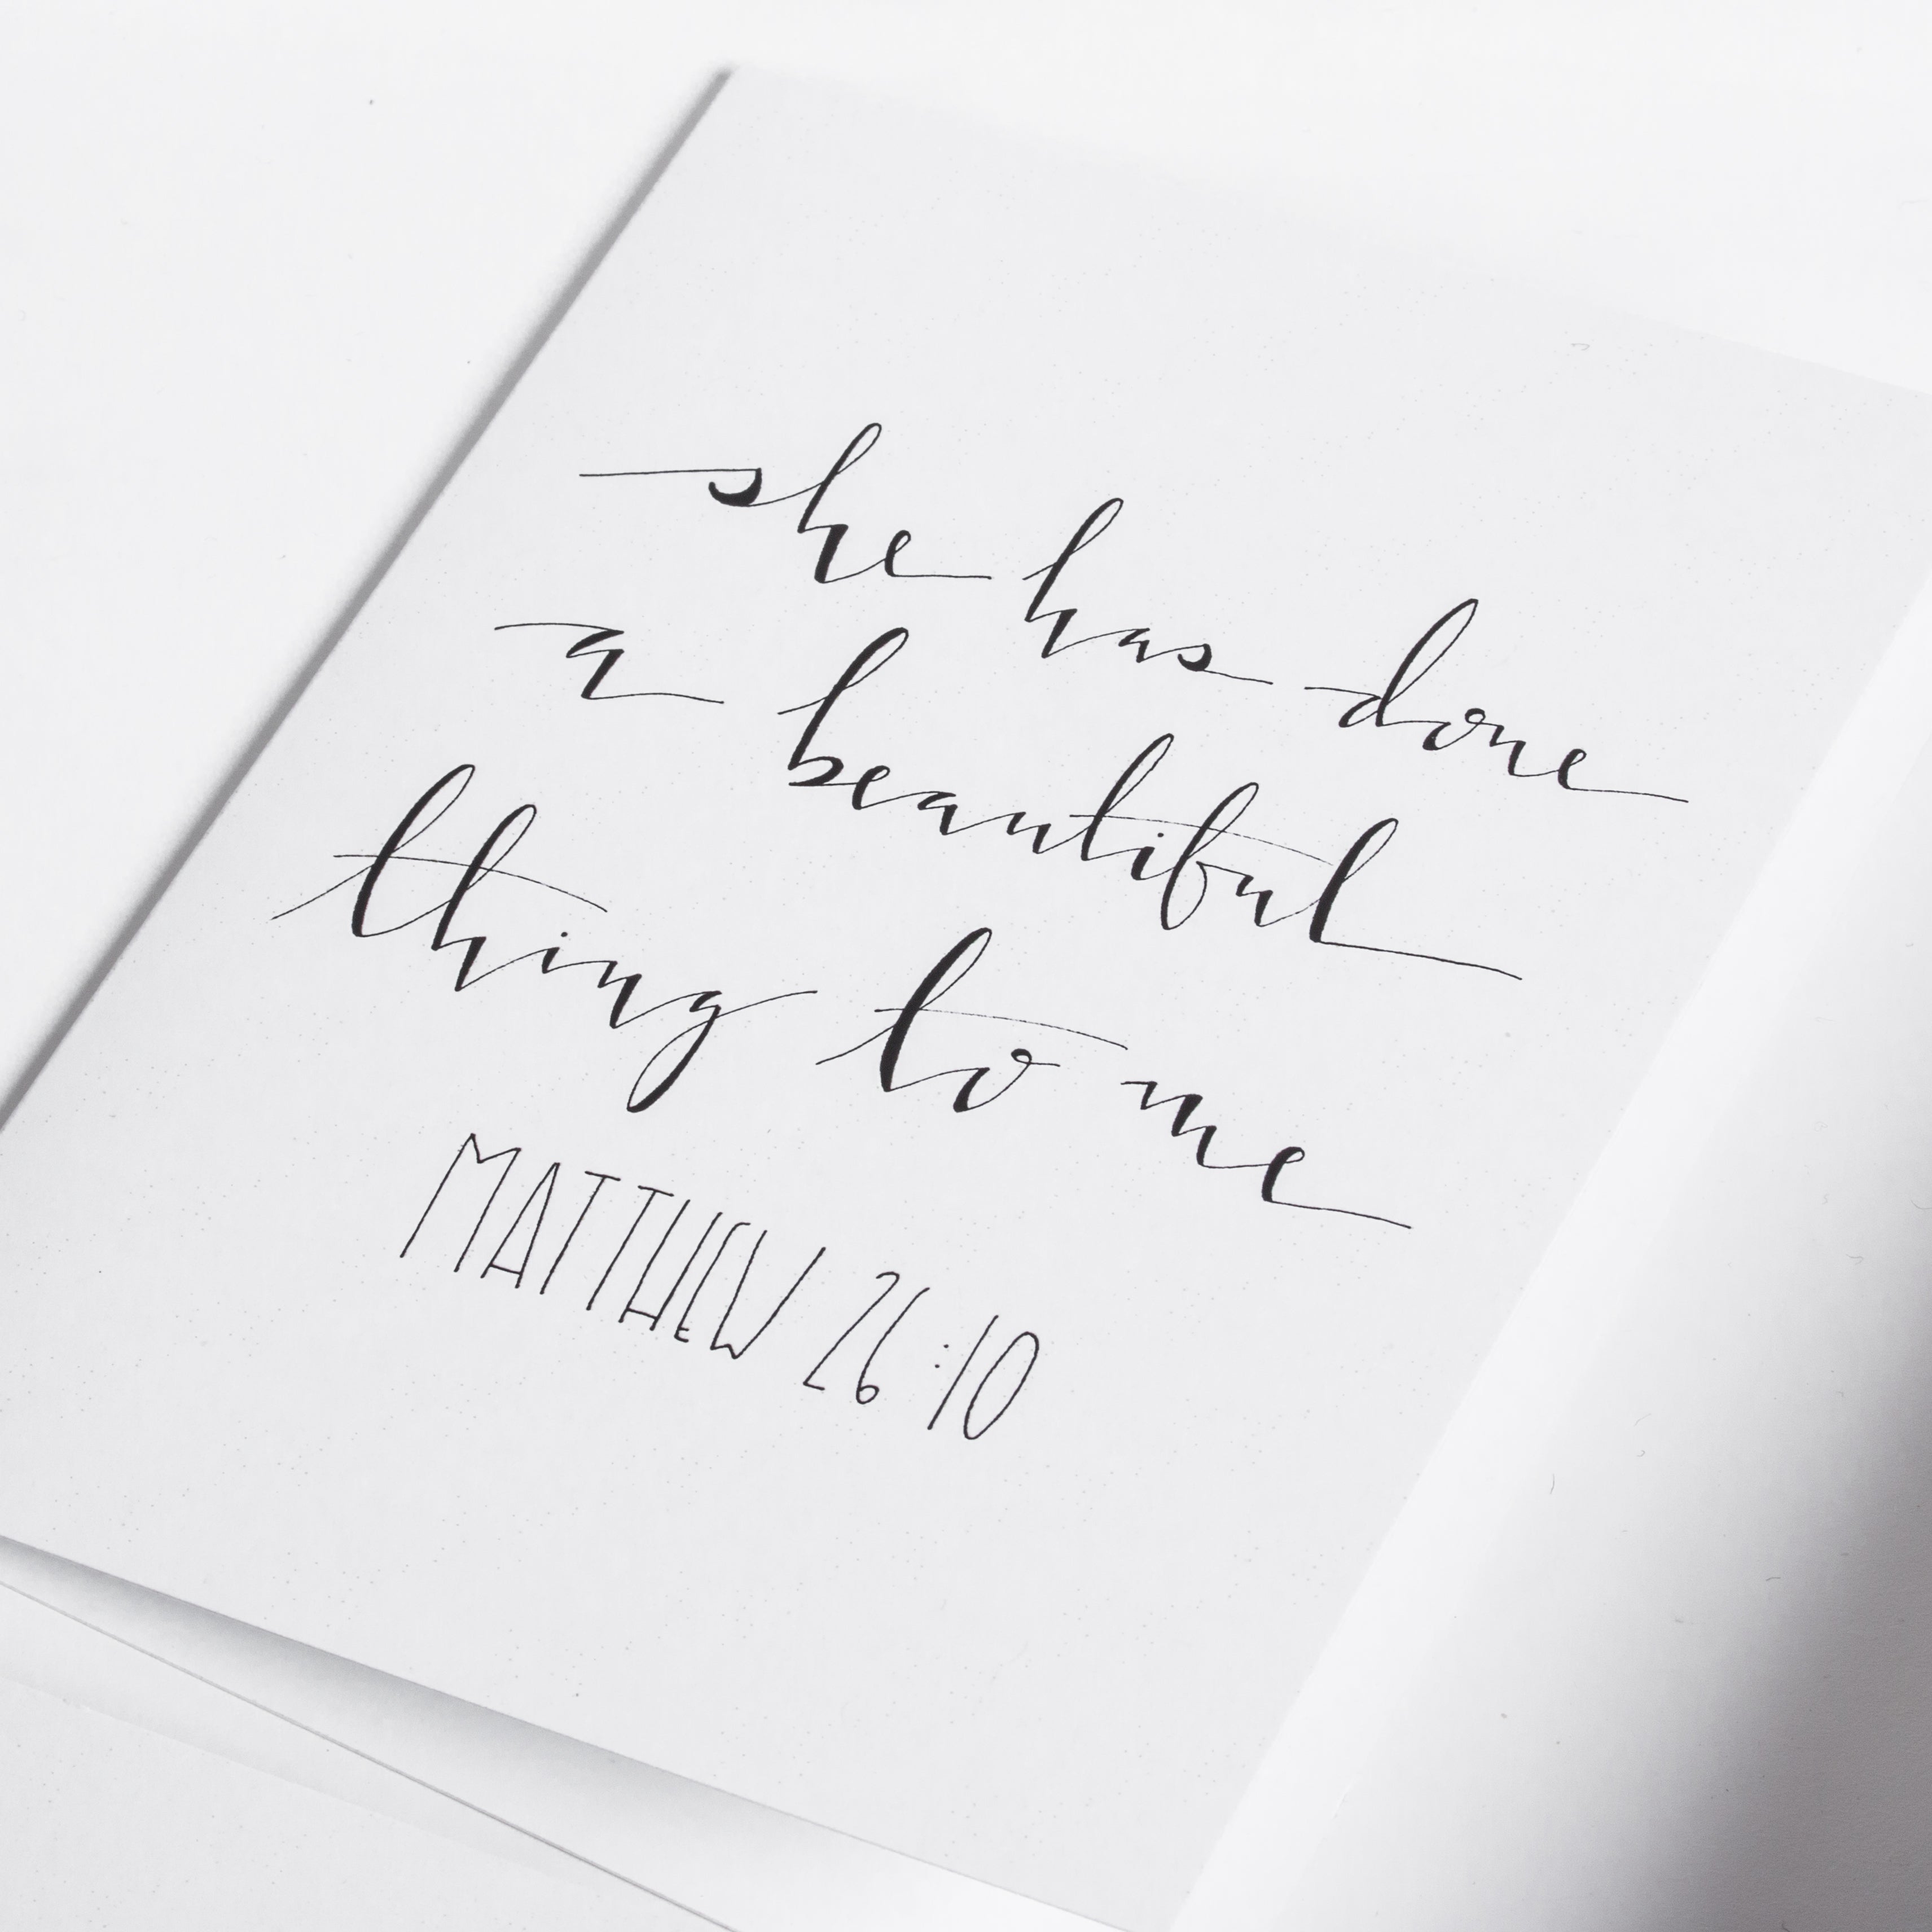 she has done
a beautiful
thing to me
MATTHEW 26:10